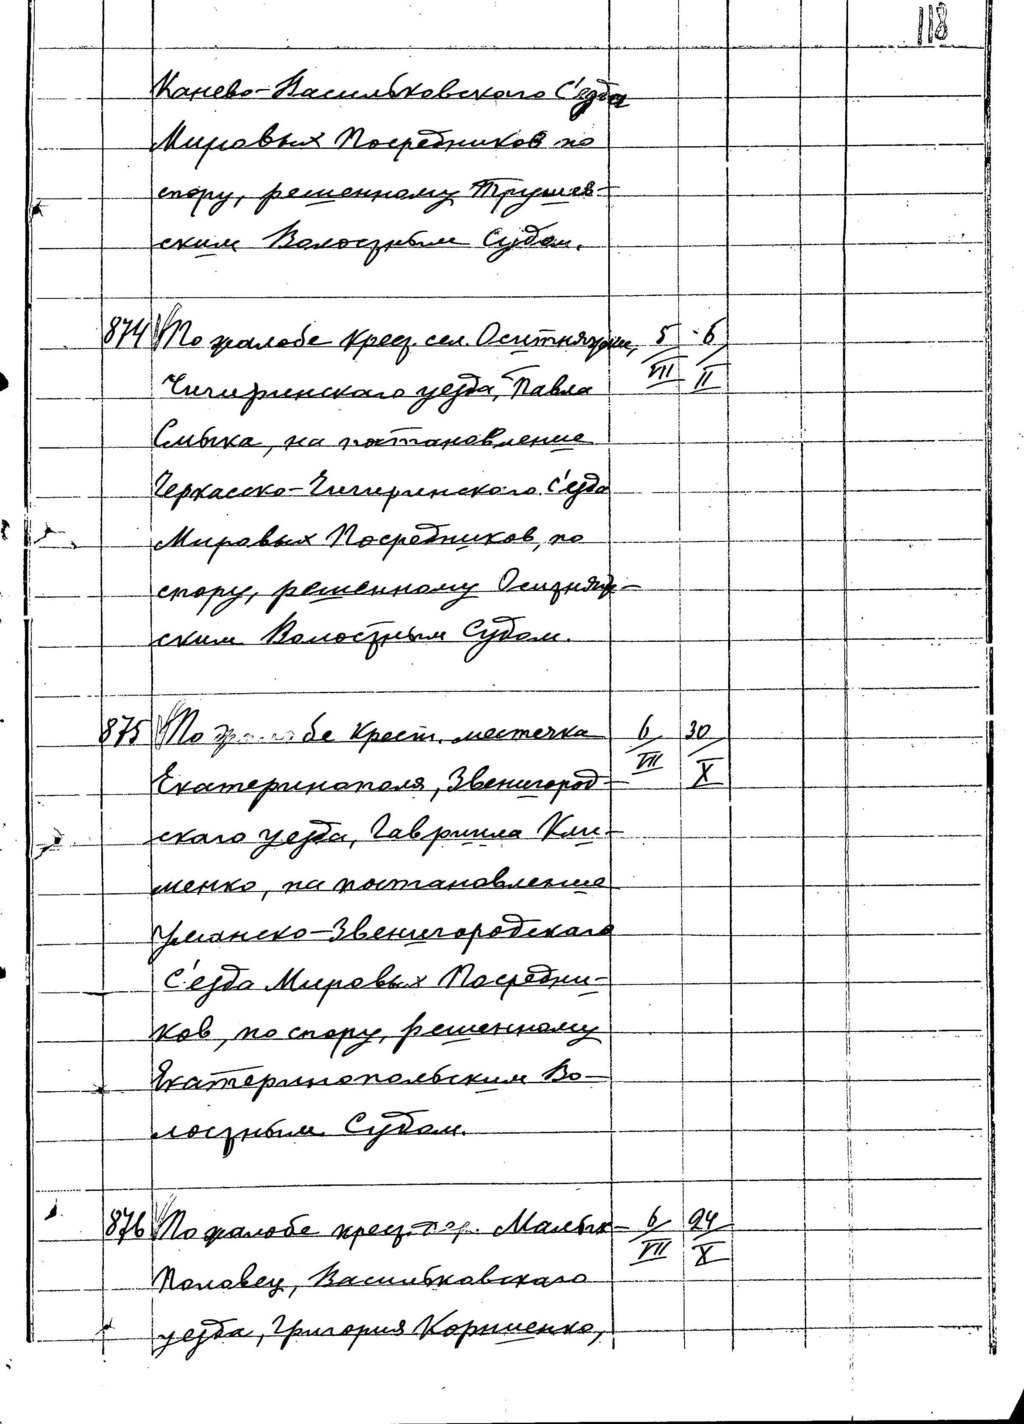 118
Канево-Васильковского С'езда
Мировых Посредников по
спору, решенному Трушев-
ским Волостным Судом.
874 По жалобе крест. сел. Оситняжки, 5/VII 6/II
Чигиринского уезда, Павла
Смыка, на постановление
Черкасско-Чигиринского С'езда
Мировых Посредников, по
спору, решенному Оситняж-
ским Волостным Судом.
875 По жалобе крест. местечка 6/VII 30/X
Екатеринополя, Звенигород-
ского уезда, Гавриила Кли-
менко, на постановление
Уманско-Звенигородского
С'езда Мировых Посредни-
ков, по спору, решенному
Екатеринопольским Во-
лостным Судом.
876 По жалобе крест. Малых- 6/VII 24/X
Половец, Васильковского
уезда, Григория Корниенко,